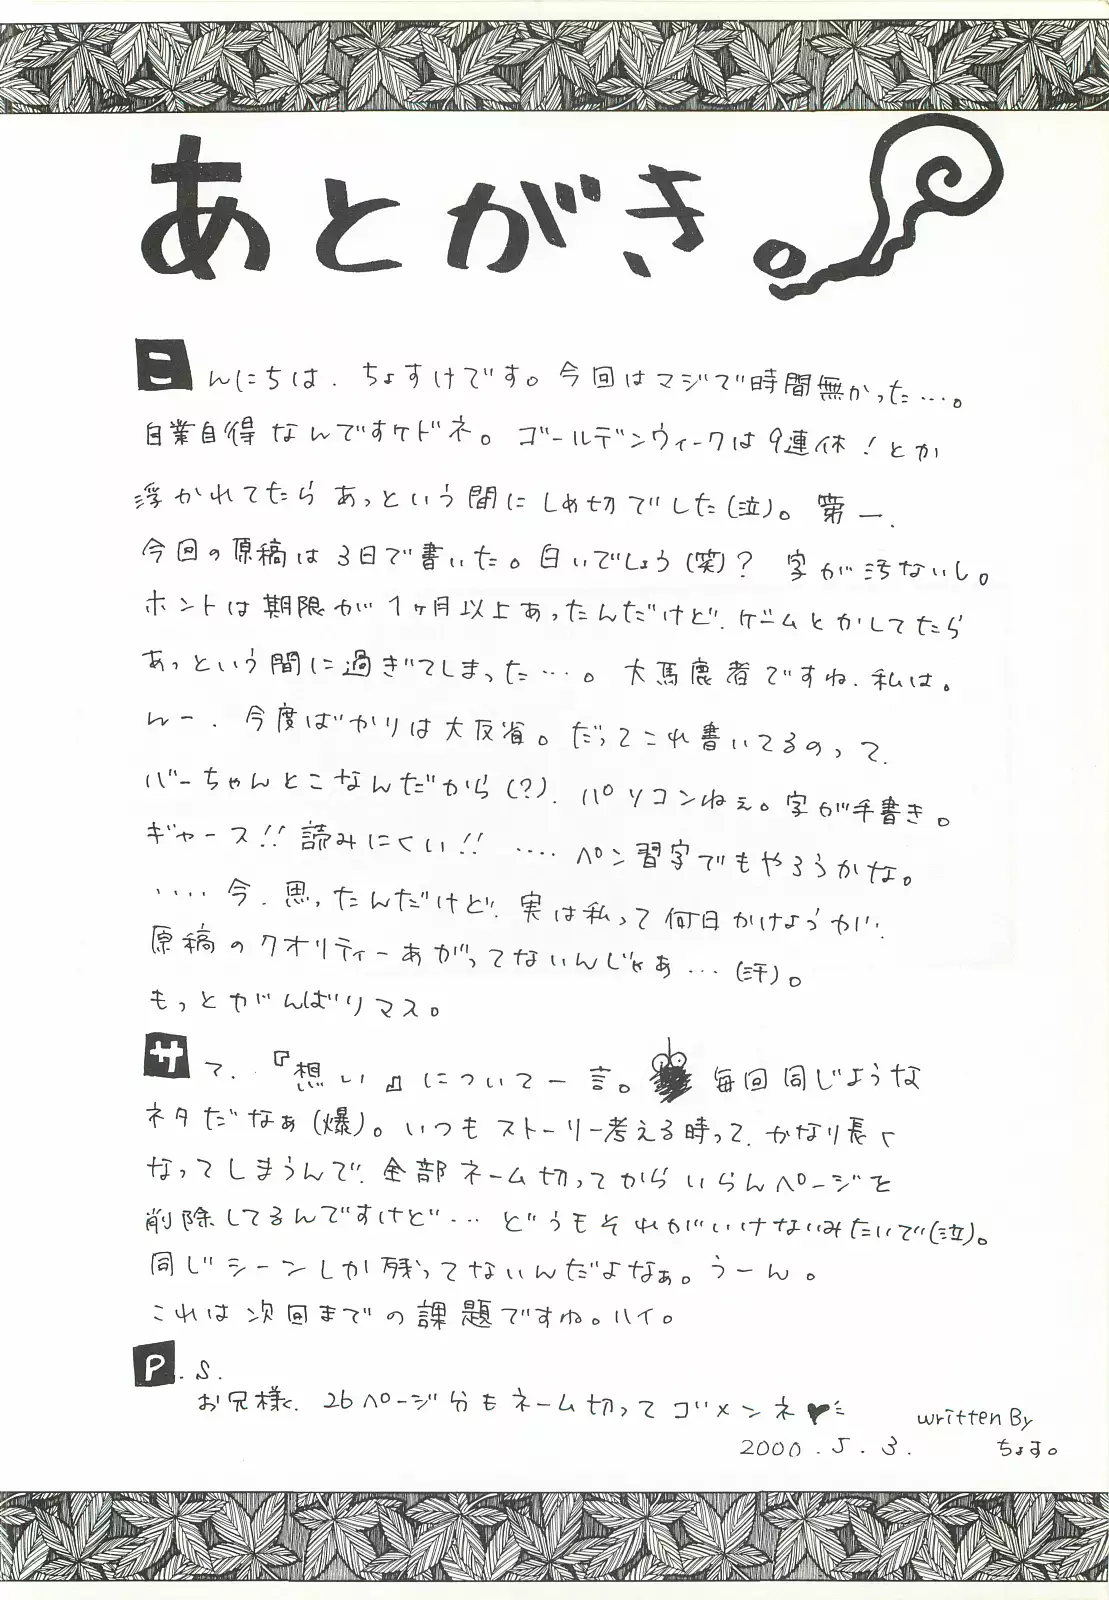 あとがき。
こんにちは、ちょすけです。今回はマジで時間無かった…。
自業自得なんですケドネ。ゴールデンウィークは9連休!とか
浮かれてたらあっという間にしめ切でした(泣)。第一、
今回の原稿は3日で書いた。白いでしょう(笑)? 字が汚ないし。
ホントは期限が1ヶ月以上あったんだけど、ゲームとかしてたら
あっという間に過ぎてしまった…。大馬鹿者ですね、私は。
んー、今度ばかりは大反省。だってこれ書いてるのって、
バーちゃんとこなんだから(?)、パソコンねぇ。字が手書き。
ギャース!!読みにくい!! ‥‥ペン習字でもやろうかな。
‥‥今、思ったんだけど、実は私って何日かけようが、
原稿のクオリティーあがってないんじゃあ…(汗)。
もっとがんばリマス。
サて、『想い』について一言。毎回同じような
ネタだなぁ(爆)。いつもストーリー考える時って、かなり長く
なってしまうんで、全部ネーム切ってからいらんページを
削除してるんですけど…どうもそれがいけないみたいで(泣)。
同じシーンしか残ってないんだよなぁ。うーん。
これは次回までの課題ですね。ハイ。
P.S.
お兄様、26ページ分もネーム切ってゴメンネ♥
written By
2000.5.3. ちょす。